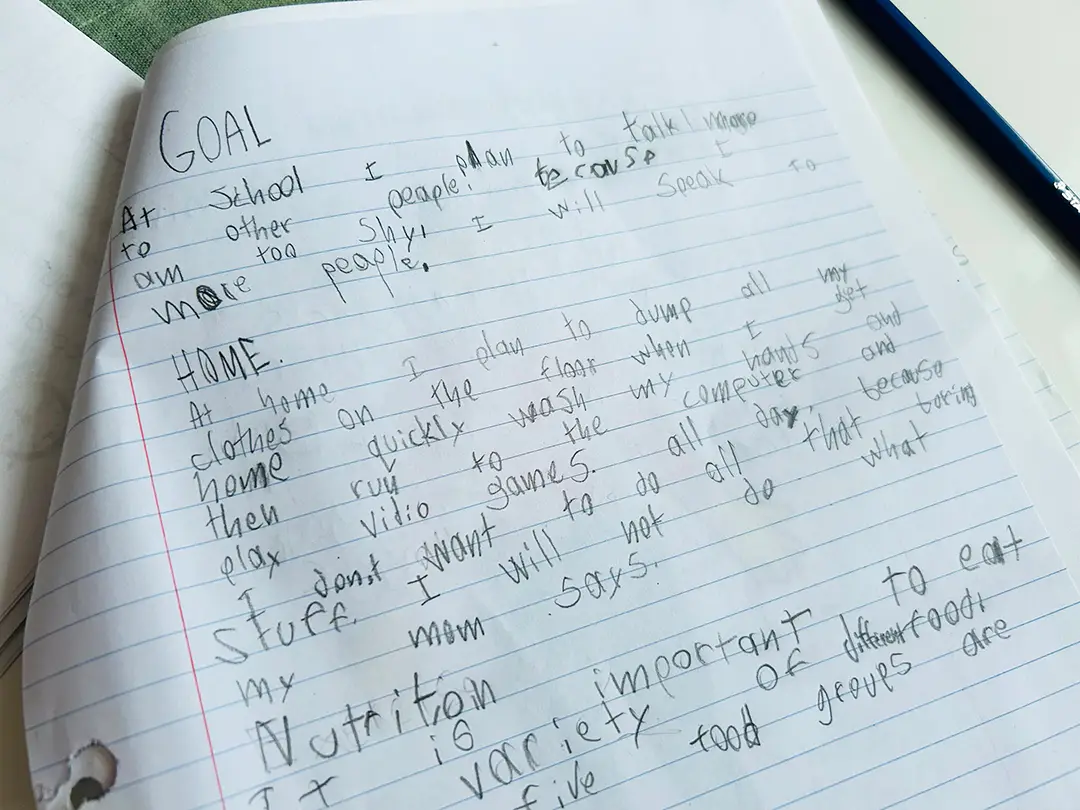 GOAL
At School I plan to talk more
to other people. because I
am too shy, I will speak to
more people.
HOME.
At home I plan to dump all my
clothes on the floor when I get
home quickly wash my hants and
then run to the computer and
play vidio games. all day, because
I don,t want to do all that boring
stuff. I will not do what
my mom says.
Nutrition
It is important to eat
variety of different food,
five food groups are